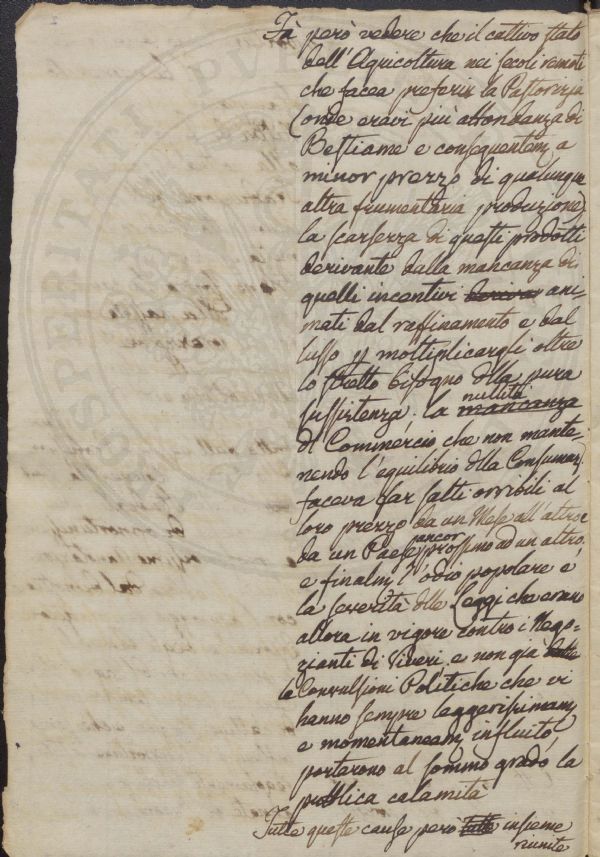 Fà però vedere che il cattivo stato
dell'Agricoltura nei secoli remoti
che facea preferir la Pastorizia
(onde eravi più abbondanza di
Bestiame e conseguentem. a
minor prezzo di qualunque
altra frumentaria produzione)
la scarsezza di questi prodotti
derivante dalla mancanza di
quelli incentivi deriva ani-
mati dal raffinamento e dal
lusso p moltiplicargli oltre
lo stretto bisogno dlla pura
sussistenza. la mancanza nullità
di Commercio che non mante-
nendo l'equilibrio dlla Consumaz.
faceva far salti orribili al
loro prezzo da un Mese all'altro e
da un Paese ancor prossimo ad un altro.
e finalm. l'odio popolare e
la severità dlle Leggi che erano
allora in vigore contro i Nego-
zianti di Viveri, e non già
le Convulsioni Politiche che vi
hanno sempre leggerissimam.
e momentaneam. influito,
portarono al sommo grado la
pubblica calamità
Tutte queste cause però tutte insieme
riunite
PROSPERITATI PUBL